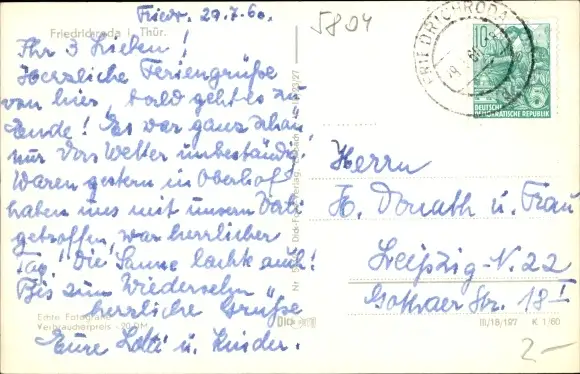 Friedr. 29.7.60.
5804
Friedrichroda i. Thür.
Ihr 3 Lieben!
Herzliche Feriengrüße
von hier, bald geht es zu
Ende! Es war ganz schön,
nur das Wetter unbeständig.
Waren gestern in Oberhof
haben uns mit unsern Vati
getroffen, war herrlicher
Tag! Die Sonne lachte auch!
Bis zum Wiedersehn
herzliche Grüße
Eure Lotti u. Kinder.
Echte Fotografie
Verbraucherpreis -,20 DM
FRIEDRICHRODA
10
DEUTSCHE
DEMOKRATISCHE REPUBLIK
Herrn
H. Donath u. Frau
Leipzig-N. 22
Gothaer Str. 18 I
III/18/197 K 1/60
2-